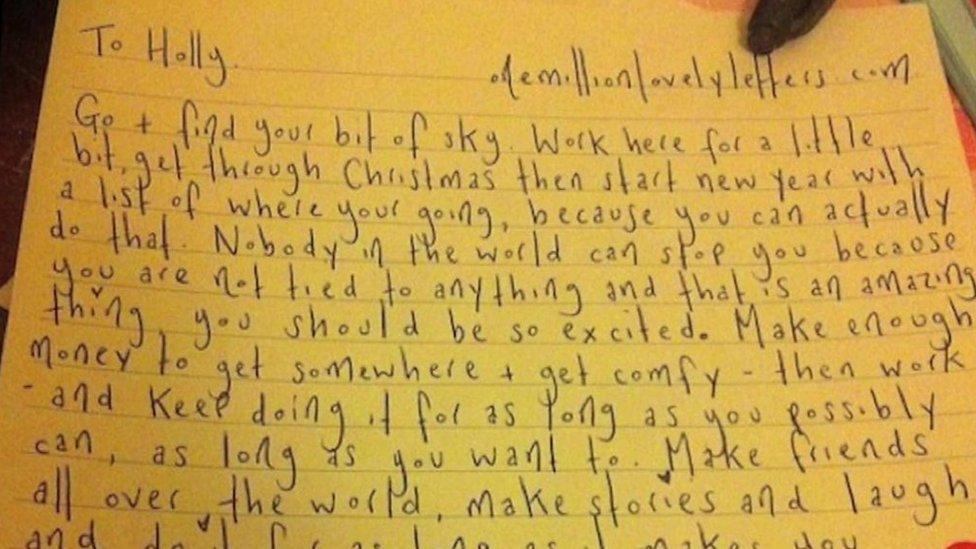 To Holly.
onemillionlovelyletters.com
Go + find your bit of sky. Work here for a little
bit, get through Christmas then start new year with
a list of where your going, because you can actually
do that. Nobody in the world can stop you because
you are not tied to anything and that is an amazing
thing, you should be so excited. Make enough
money to get somewhere + get comfy - then work
- and keep doing it for as long as you possibly
can, as long as you want to. Make friends
all over the world, make stories and laugh
and do it for as long as it makes you